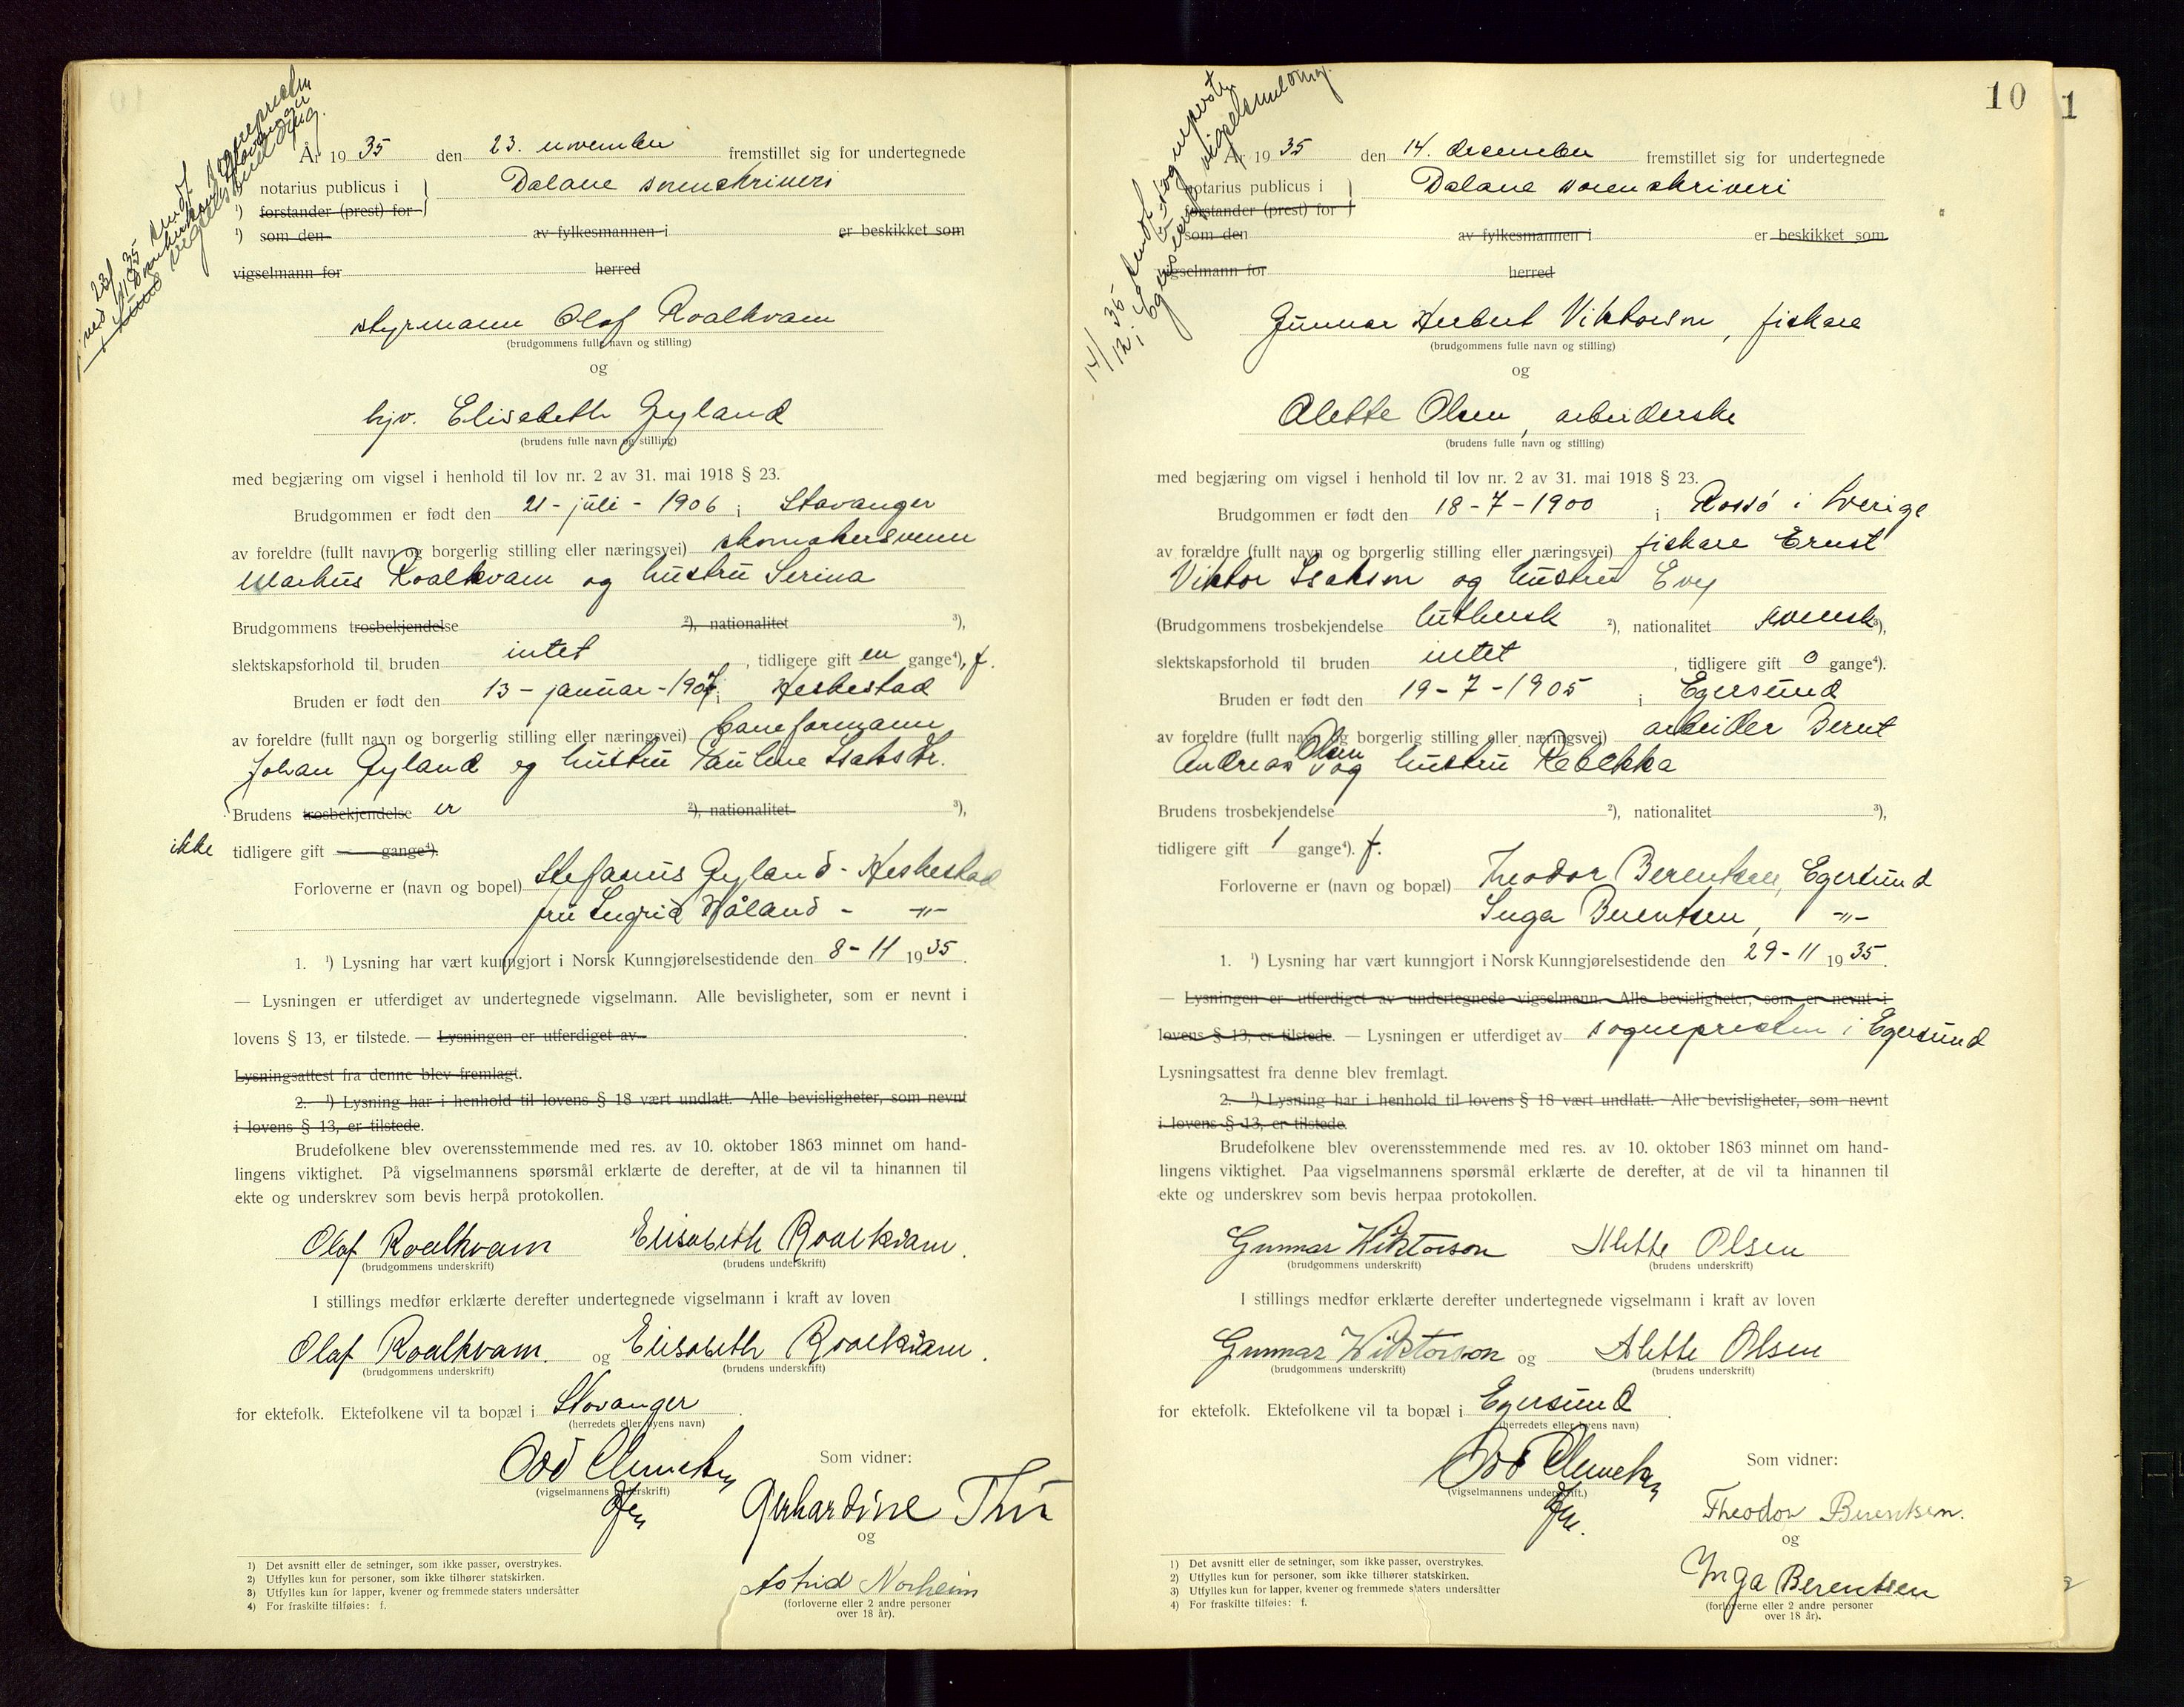 År 1935 den 23. november fremstillet sig for undertegnede
notarius publicus i Dalane sorenskriveri
¹) forstander (prest) for
¹) som den av fylkesmannen i er beskikket som
vigselmann for herred
styrmann Olaf Roalkvam
(brudgommens fulle navn og stilling)
og
hjv. Elisabeth Gyland
(brudens fulle navn og stilling)
med begjæring om vigsel i henhold til lov nr. 2 av 31. mai 1918 § 23.
Brudgommen er født den 21 - juli - 1906 i Stavanger
av foreldre (fullt navn og borgerlig stilling eller næringsvei) skomakersvenn
Markus Roalkvam og hustru Serina
Brudgommens trosbekjendelse ²), nationalitet ³),
slektskapsforhold til bruden intet, tidligere gift en gange⁴), f.
Bruden er født den 13 - januar - 1907 i Heskestad
av foreldre (fullt navn og borgerlig stilling eller næringsvei) baneformann
Johan Gyland og hustru Pauline Isaksdtr.
Brudens trosbekjendelse er ²), nationalitet ³),
ikke tidligere gift gange⁴).
Forloverne er (navn og bopel) Stefanus Gyland - Heskestad
fru Ingrid Håland - -"-
1. ¹) Lysning har vært kunngjort i Norsk Kunngjørelsestidende den 8 - 11 1935.
— Lysningen er utferdiget av undertegnede vigselmann. Alle bevisligheter, som er nevnt i
lovens § 13, er tilstede. — Lysningen er utferdiget av .
Lysningsattest fra denne blev fremlagt.
2. ¹) Lysning har i henhold til lovens § 18 vært undlatt. Alle bevisligheter, som nevnt
i lovens § 13, er tilstede.
Brudefolkene blev overensstemmende med res. av 10. oktober 1863 minnet om hand-
lingens viktighet. På vigselmannens spørsmål erklærte de derefter, at de vil ta hinannen til
ekte og underskrev som bevis herpå protokollen.
Olaf Roalkvam Elisabeth Roalkvam.
(brudgommens underskrift) (brudens underskrift)
I stillings medfør erklærte derefter undertegnede vigselmann i kraft av loven
Olaf Roalkvam. og Elisabeth Roalkvam.
(brudgommens underskrift) (brudens underskrift)
for ektefolk. Ektefolkene vil ta bopæl i Stavanger.
(herredets eller byens navn)
Odd Clemetsen
(vigselmannens underskrift)
Som vidner:
Gerhardine
og
Astrid Norheim
(forloverne eller 2 andre personer
over 18 år).
1) Det avsnitt eller de setninger, som ikke passer, overstrykes.
2) Utfylles kun for personer, som ikke tilhører statskirken.
3) Utfylles kun for lapper, kvener og fremmede staters undersåtter
4) For fraskilte tilføies: f.
10
1
14/12 35 sendt sogneprest
i Egersund vigselsmelding.
År 1935 den 14. desember fremstillet sig for undertegnede
notarius publicus i Dalane sorenskriveri
forstander (prest) for
som den av fylkesmannen i er beskikket som
vigselmann for herred
Gunnar Herbert Viktorson, fiskare
(brudgommens fulle navn og stilling)
og
Alette Olsen, arbeiderske
(brudens fulle navn og stilling)
med begjæring om vigsel i henhold til lov nr. 2 av 31. mai 1918 § 23.
Brudgommen er født den 18 - 7 - 1900 i Rossö i Sverige
av forældre (fullt navn og borgerlig stilling eller næringsvei) fiskare Ernst
Viktor Isakson og hustru Evy
(Brudgommens trosbekjendelse luthersk ²), nationalitet svensk ³),
slektskapsforhold til bruden intet, tidligere gift 0 gange⁴).
Bruden er født den 19 - 7 - 1905 i Egersund
av foreldre (fullt navn og borgerlig stilling eller næringsvei) arbeider Bernt
Andreas Olsen og hustru Rebekka
Brudens trosbekjendelse ²), nationalitet ³),
tidligere gift 1 gange⁴). f.
Forloverne er (navn og bopæl) Theodor Berentsen, Egersund
Inga Berentsen, -"-
1. ¹) Lysning har vært kunngjort i Norsk Kunngjørelsestidende den 29 - 11 1935.
— Lysningen er utferdiget av undertegnede vigselmann. Alle bevisligheter, som er nevnt i
lovens § 13, er tilstede. — Lysningen er utferdiget av sognepresten i Egersund
Lysningsattest fra denne blev fremlagt.
2. ¹) Lysning har i henhold til lovens § 18 vært undlatt. Alle bevisligheter, som nevnt
i lovens § 13, er tilstede.
Brudefolkene blev overensstemmende med res. av 10. oktober 1863 minnet om hand-
lingens viktighet. Paa vigselmannens spørsmål erklærte de derefter, at de vil ta hinannen til
ekte og underskrev som bevis herpaa protokollen.
Gunnar Wiktorson Alette Olsen
(brudgommens underskrift) (brudens underskrift)
I stillings medfør erklærte derefter undertegnede vigselmann i kraft av loven
Gunnar Wiktorson og Alette Olsen
(brudgommens underskrift) (brudens underskrift)
for ektefolk. Ektefolkene vil ta bopæl i Egersund.
(herredets eller byens navn)
Odd Clemetsen
(vigselmannens underskrift.)
Som vidner:
Theodor Berentsen.
og
Inga Berentsen
(forloverne eller 2 andre personer
over 18 år).
1) Det avsnitt eller de setninger, som ikke passer, overstrykes.
2) Utfylles kun for personer, som ikke tilhører statskirken.
3) Utfylles kun for lapper, kvener og fremmede staters undersåtter
4) For fraskilte tilføies: f.